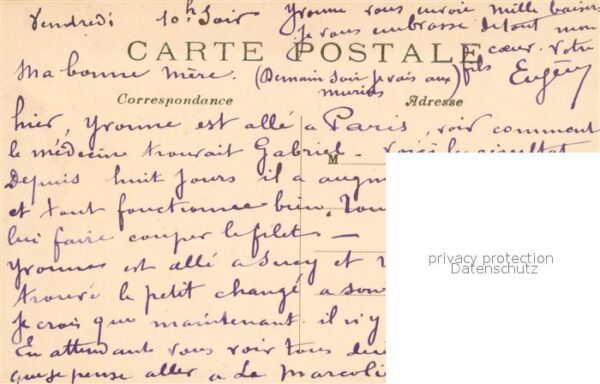 Vendredi 10h Soir
Yvonne vous envoie mille baisers
je vous embrasse de tout mon
cœur. Votre
fils
Eugène
CARTE POSTALE
Ma bonne mère. (Demain soir je vais aux
Correspondance
Adresse
hier, Yvonne est allé a Paris, voir comment
le médecin trouvait Gabriel - Voici le résultat
M
Depuis huit jours il a augm
et tout fonctionne bien,
lui faire couper le filet -
Yvonne est allé a Sucy et
trouvé le petit changé a son
Je crois que maintenant il n'y
En attendant vous voir tous
que je pense aller a La
privacy protection
Datenschutz